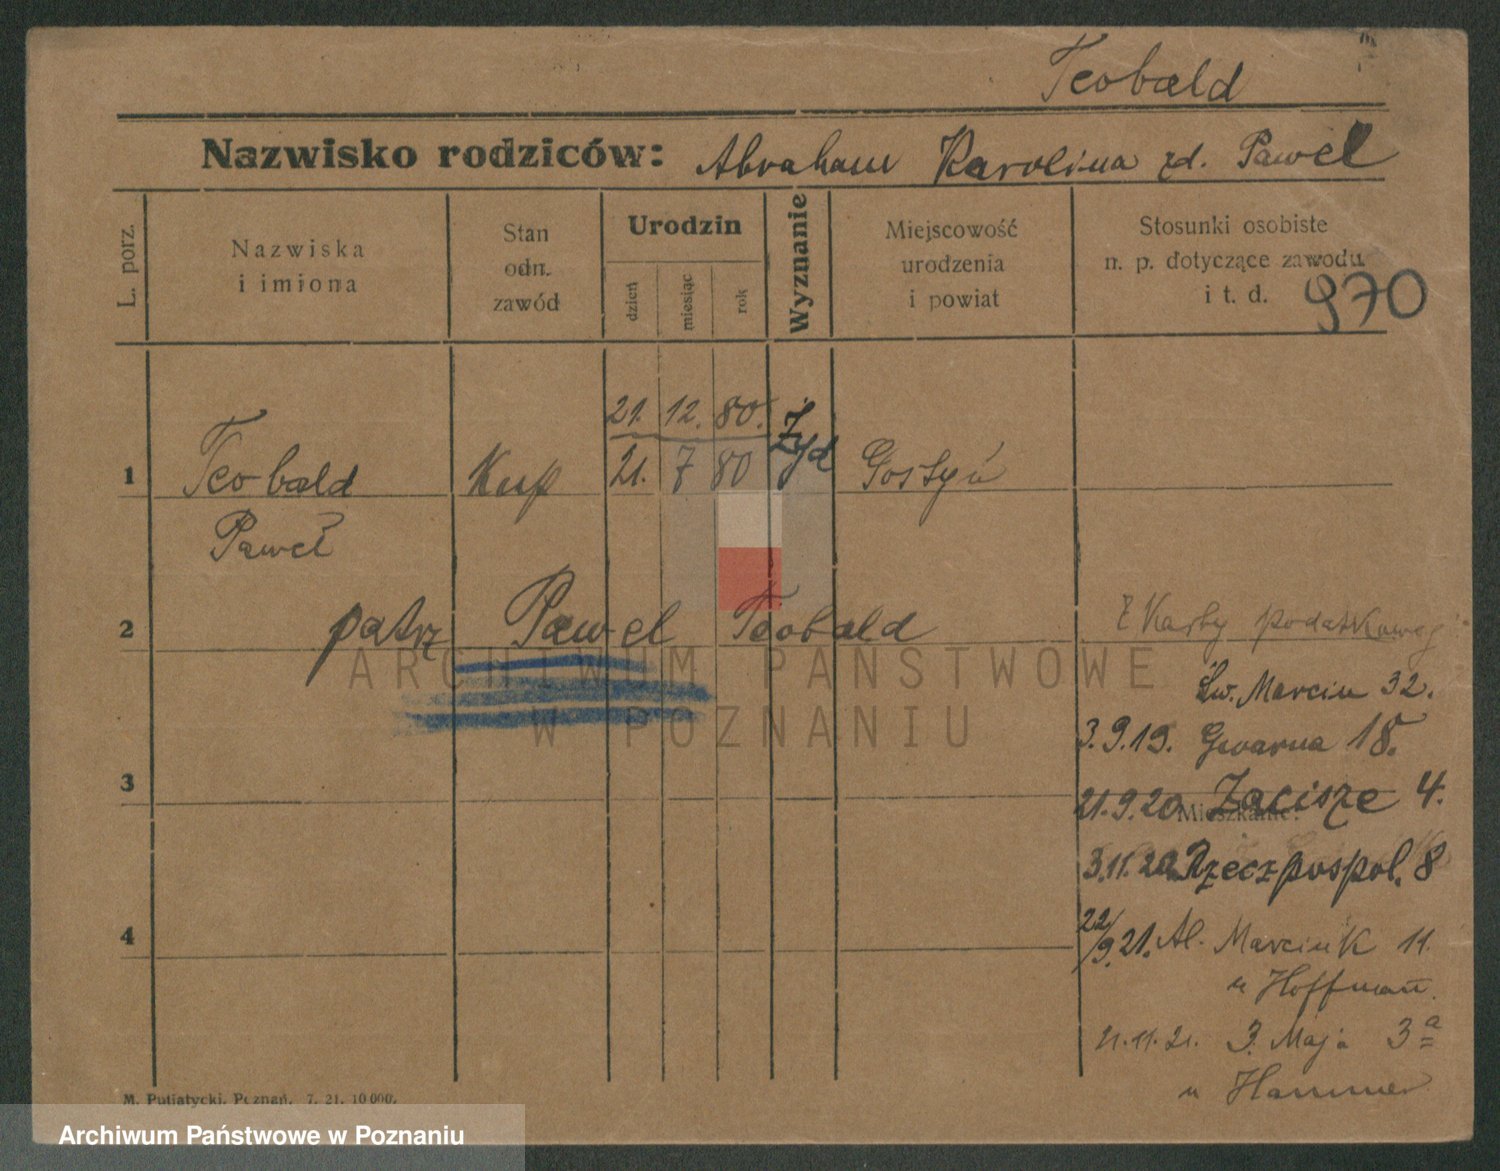 Teobald
Nazwisko rodziców: Abraham Karolina zd. Pawel
L. porz.
Nazwiska
i imiona
Stan
odn.
zawód
Urodzin
dzień
miesiąc
rok
Wyznanie
Miejscowość
urodzenia
i powiat
Stosunki osobiste
n. p. dotyczące zawodu
i t. d.
970
21. 12. 80.
1 Teobald Kup 21. 7 80 Żyd Gostyń
Paweł
2 patrz Pawel Teobald
Z Karty podatkowej
Św. Marcin 32.
3.9.19. Gwarna 18.
3
21.9.20 Zacisze 4.
Mieszkanie:
3.11.20 Rzeczpospol. 8
4
22/9.21. Al. Marcink 11.
u Hoffmann.
21.11.21. 3. Maja 3a
u Hammer
M. Putiatycki, Poznań. 7. 21. 10 000.
ARCHIWUM PAŃSTWOWE
W POZNANIU
Archiwum Państwowe w Poznaniu